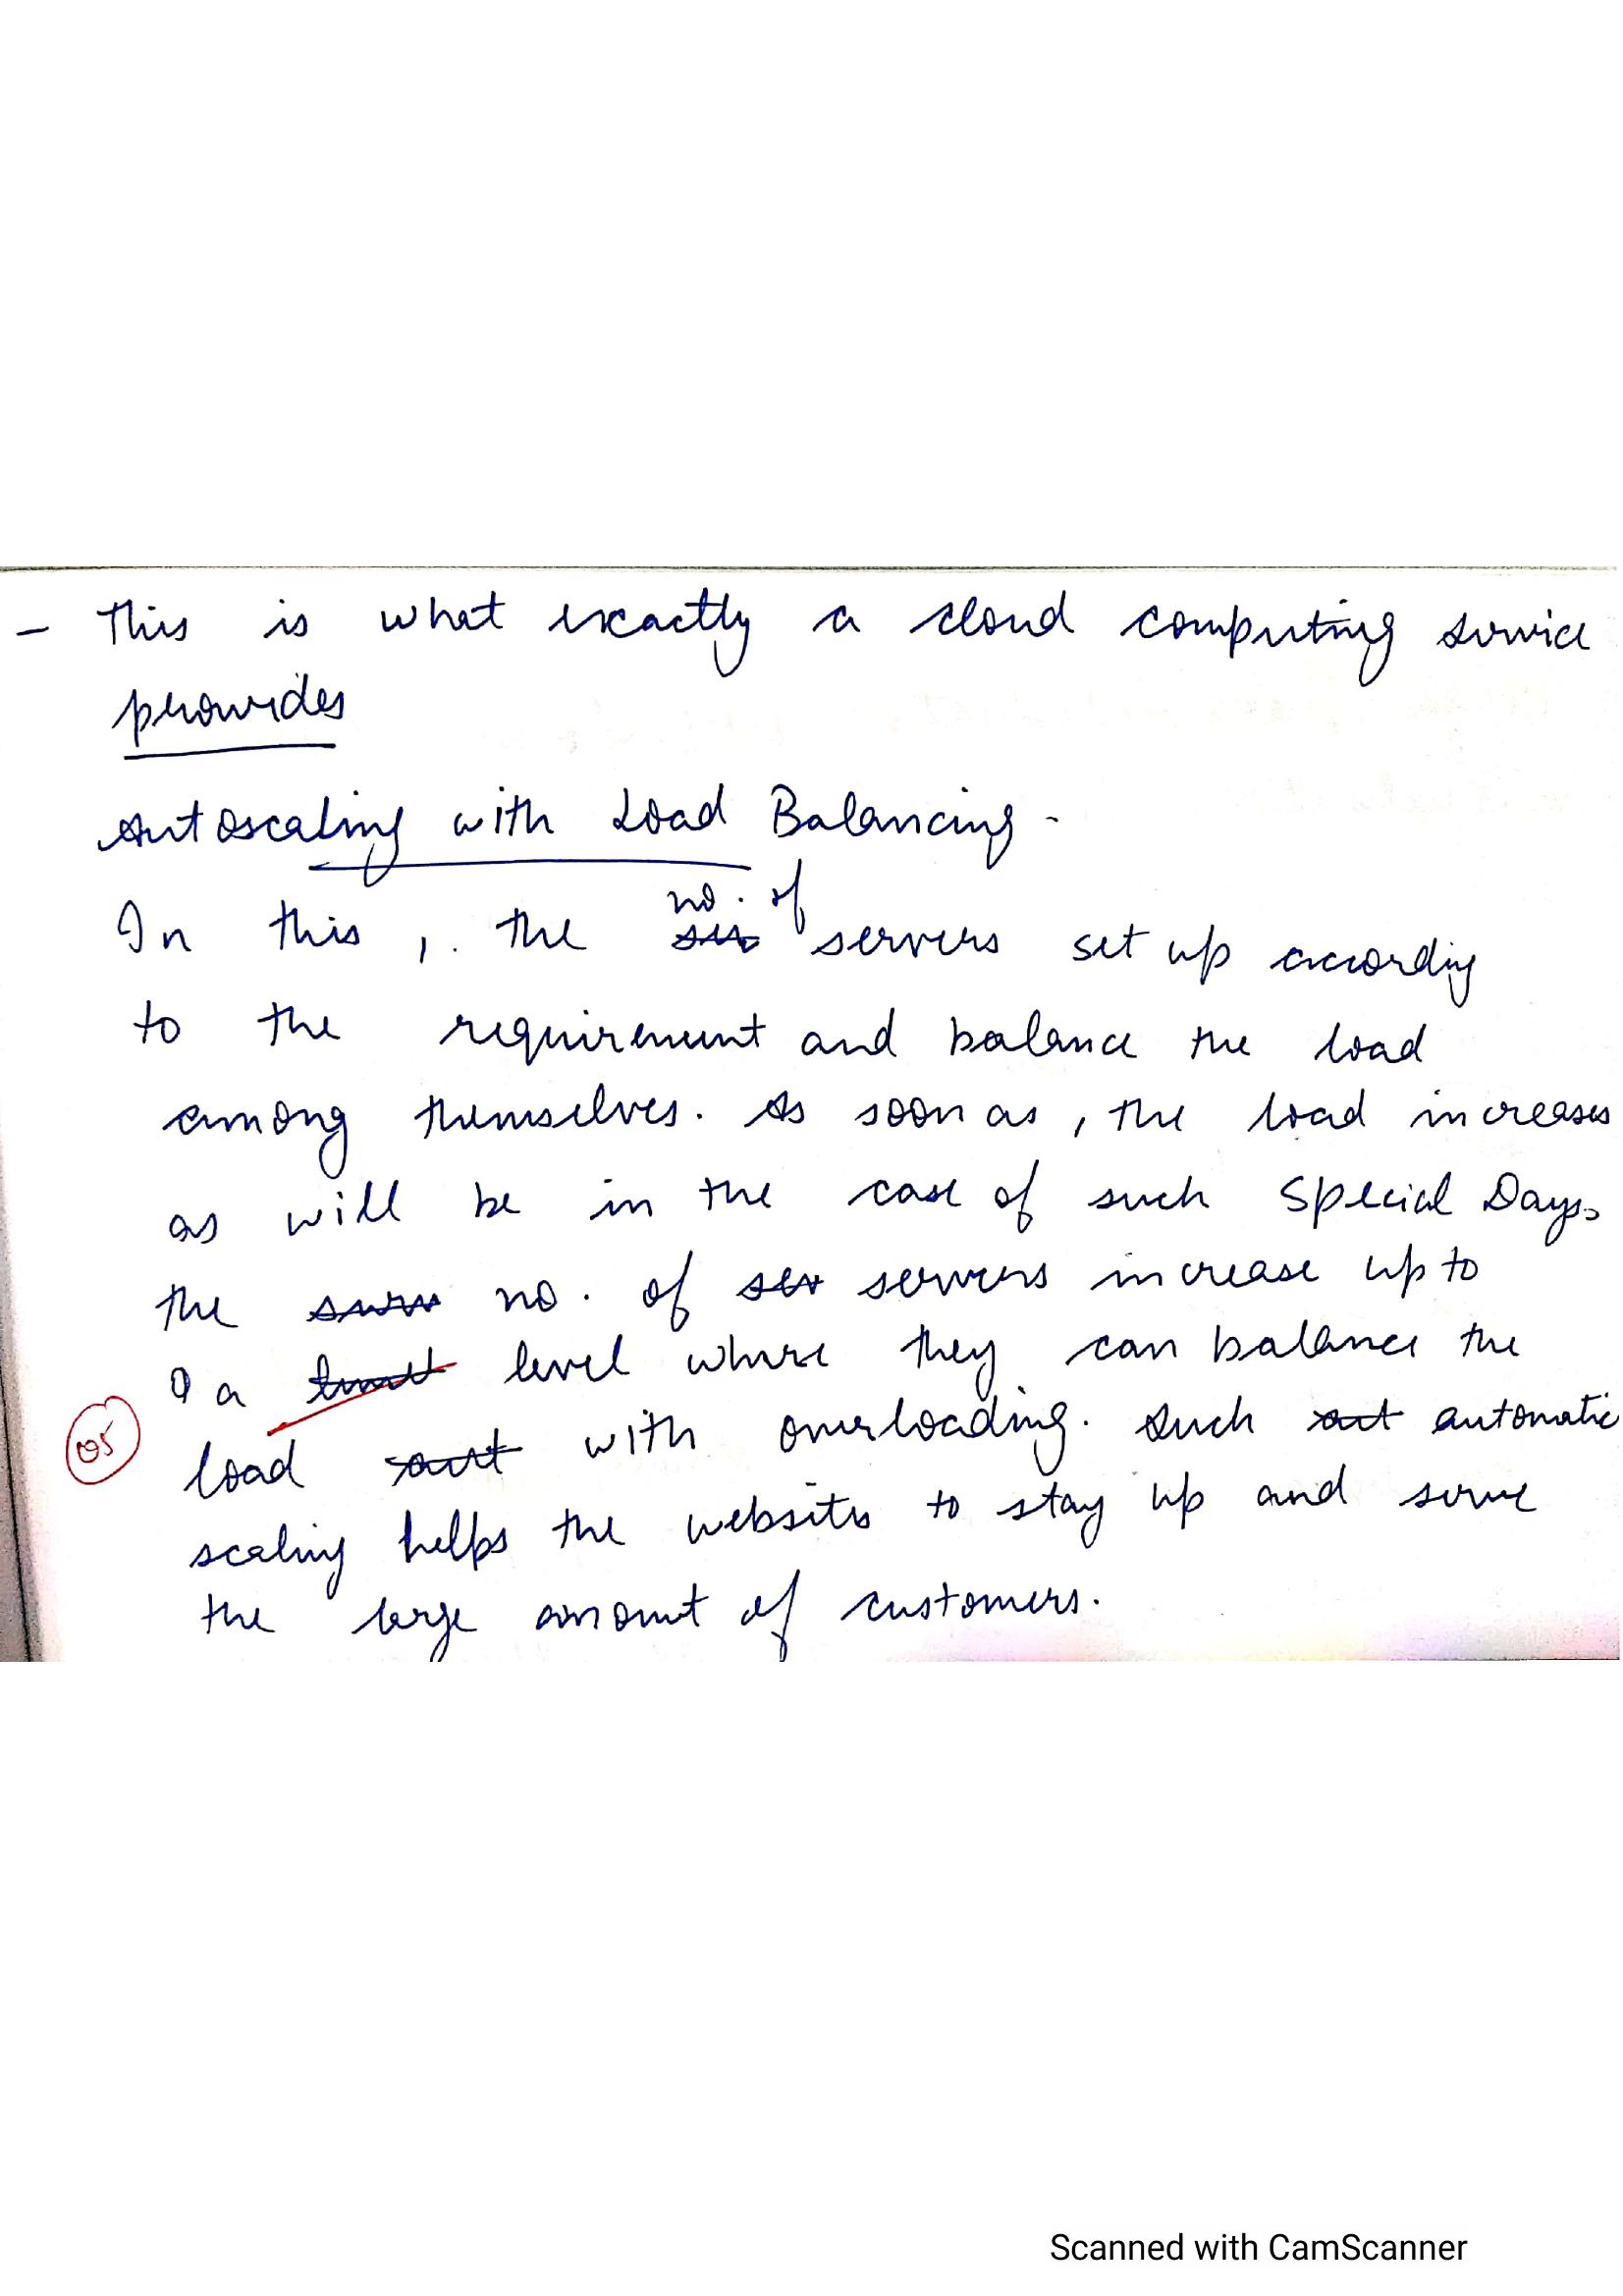 - This is what exactly a cloud computing service
provides
Autoscaling with Load Balancing -
no. of
In this, the servers set up according
to the requirement and balance the load
among themselves. As soon as, the load increases
as will be in the case of such Special Days,
the no. of servers increase up to
a level where they can balance the
05
load with overloading. Such automatic
scaling helps the websites to stay up and serve
the large amount of customers.
Scanned with CamScanner